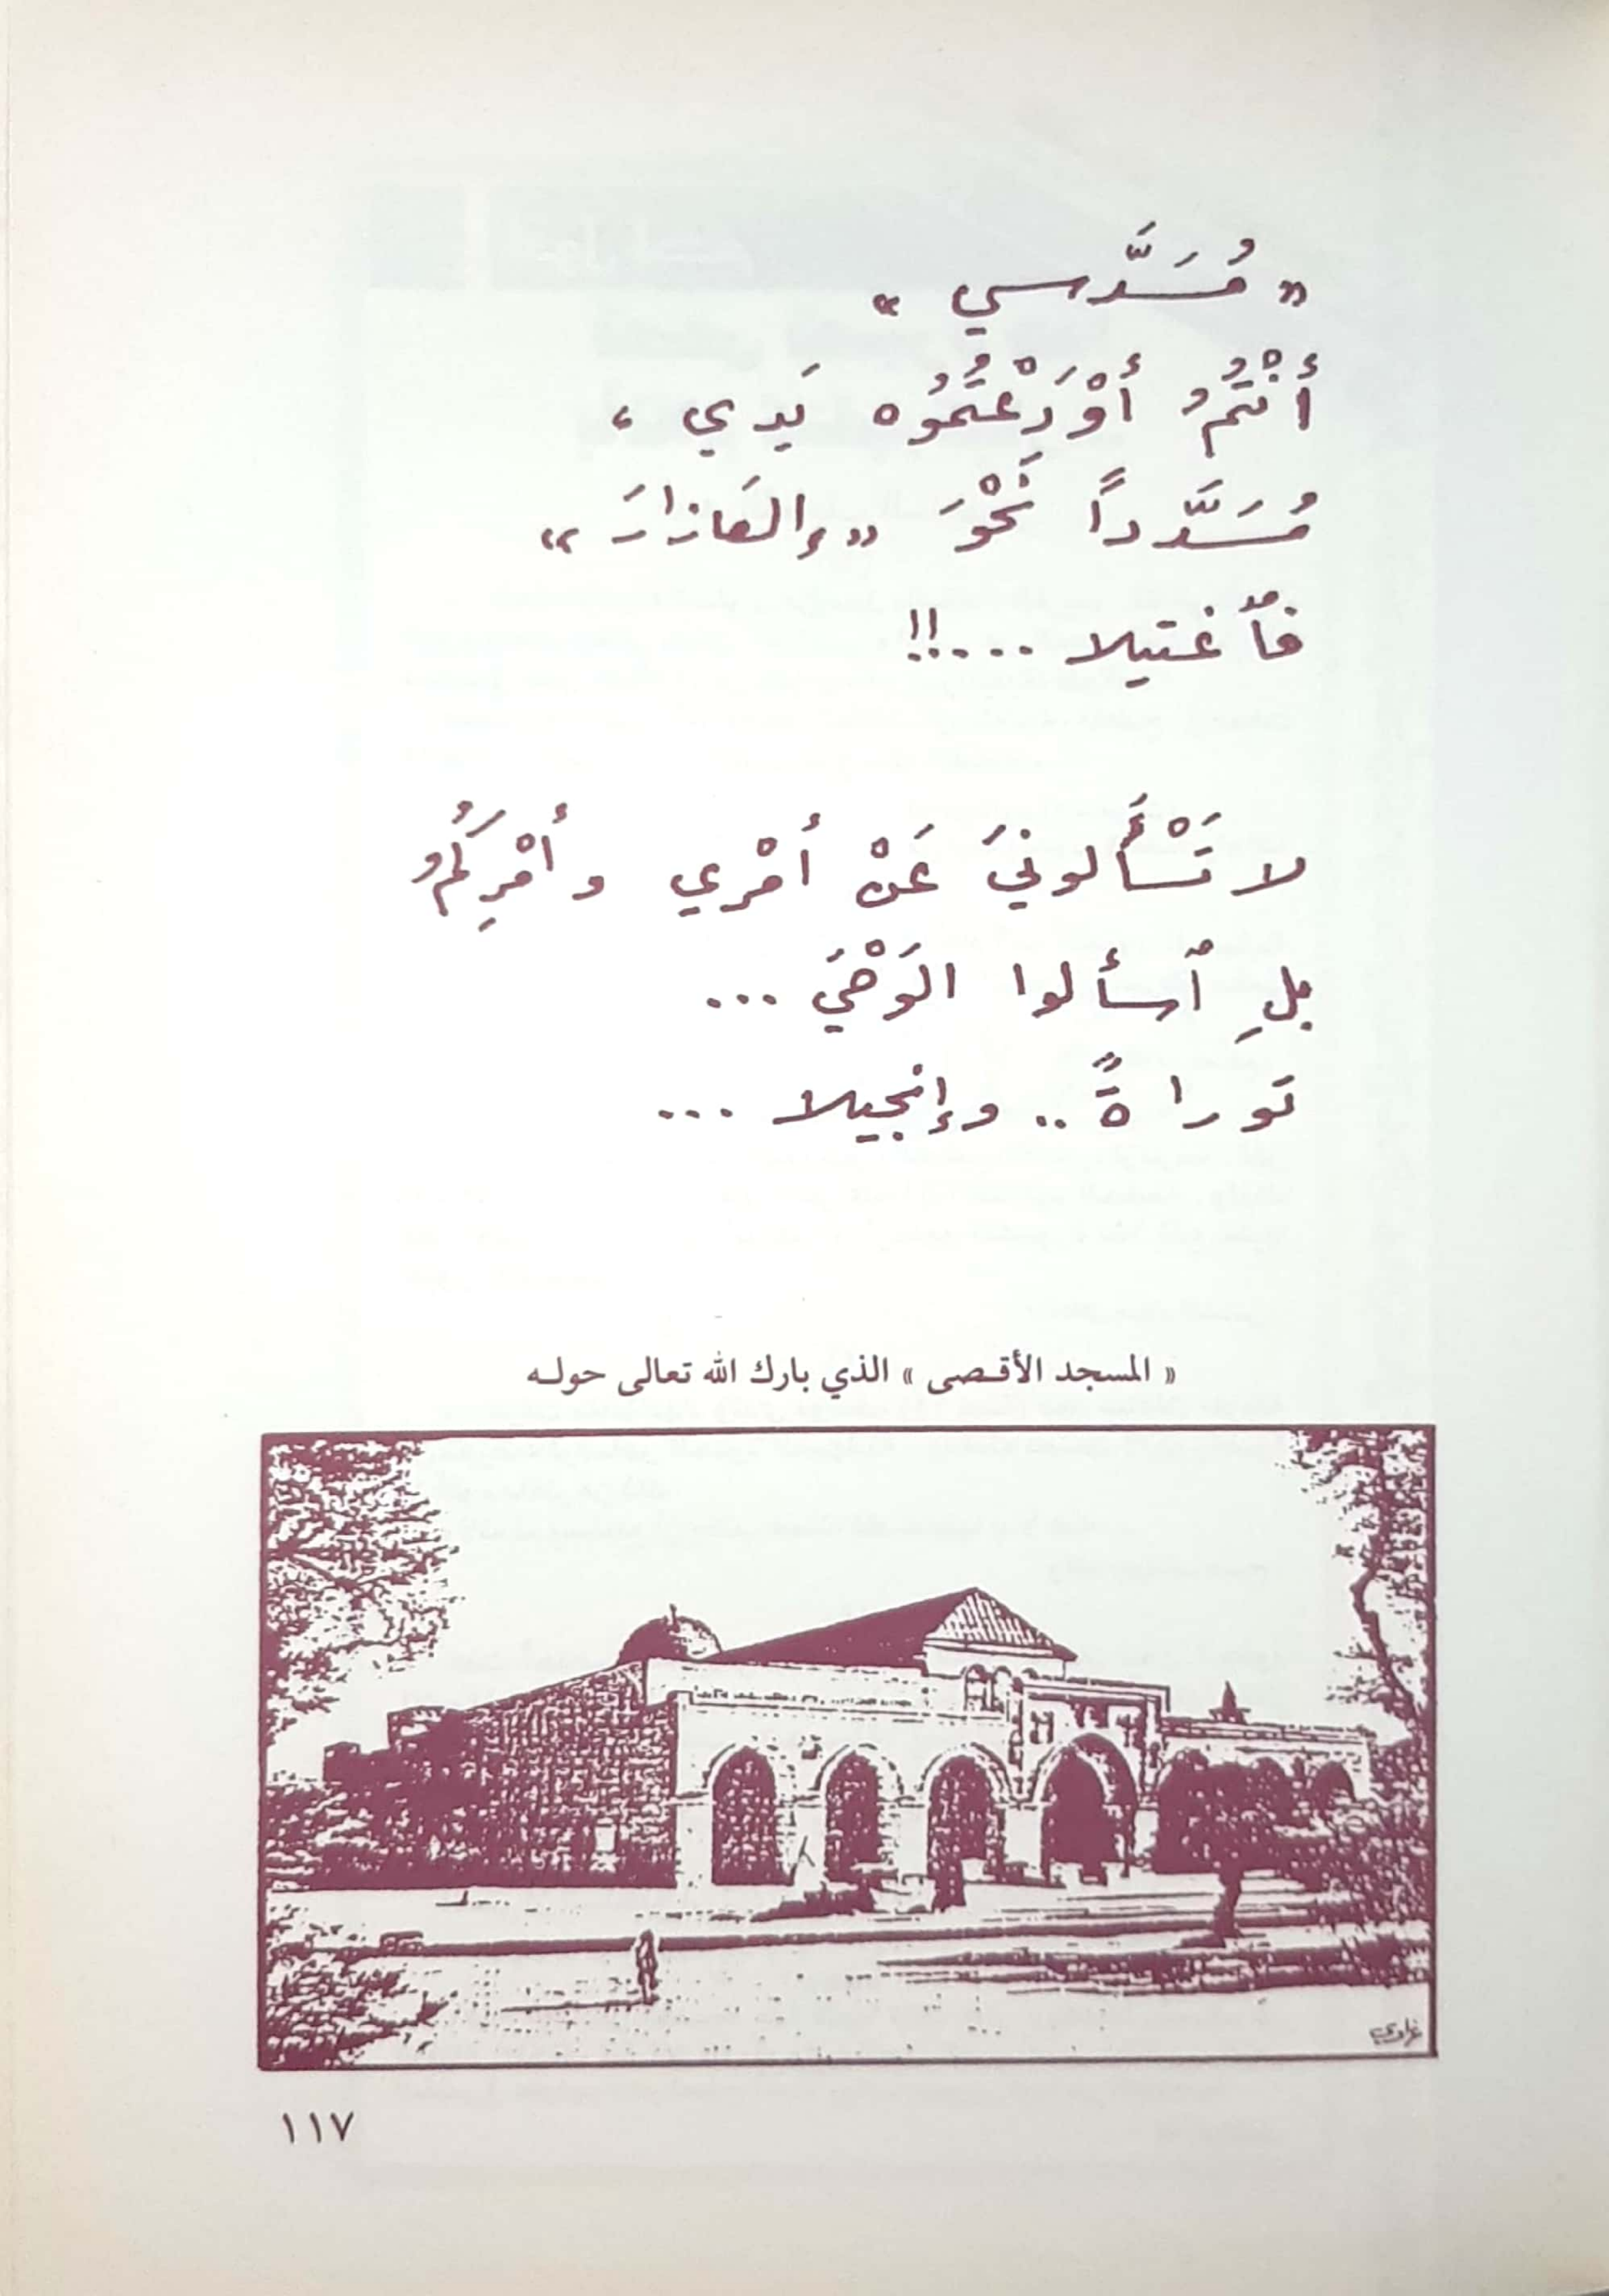 « مُسَدَّسي »
أنْتُمُ أوْدَعْتُمُوُه يَدي ،
مُسَدَّداً نَحْوَ « إلعازارَ »
فٱغتيلا ...!!
لا تَسْأَلونيَ عَنْ أمْري وأمْرِكُمُ
بلِ ٱسألوا الوَحْيَ ...
توراةً .. وإنجيلا ...
« المسجد الأقـصى » الذي بارك الله تعالى حولـه
١١٧